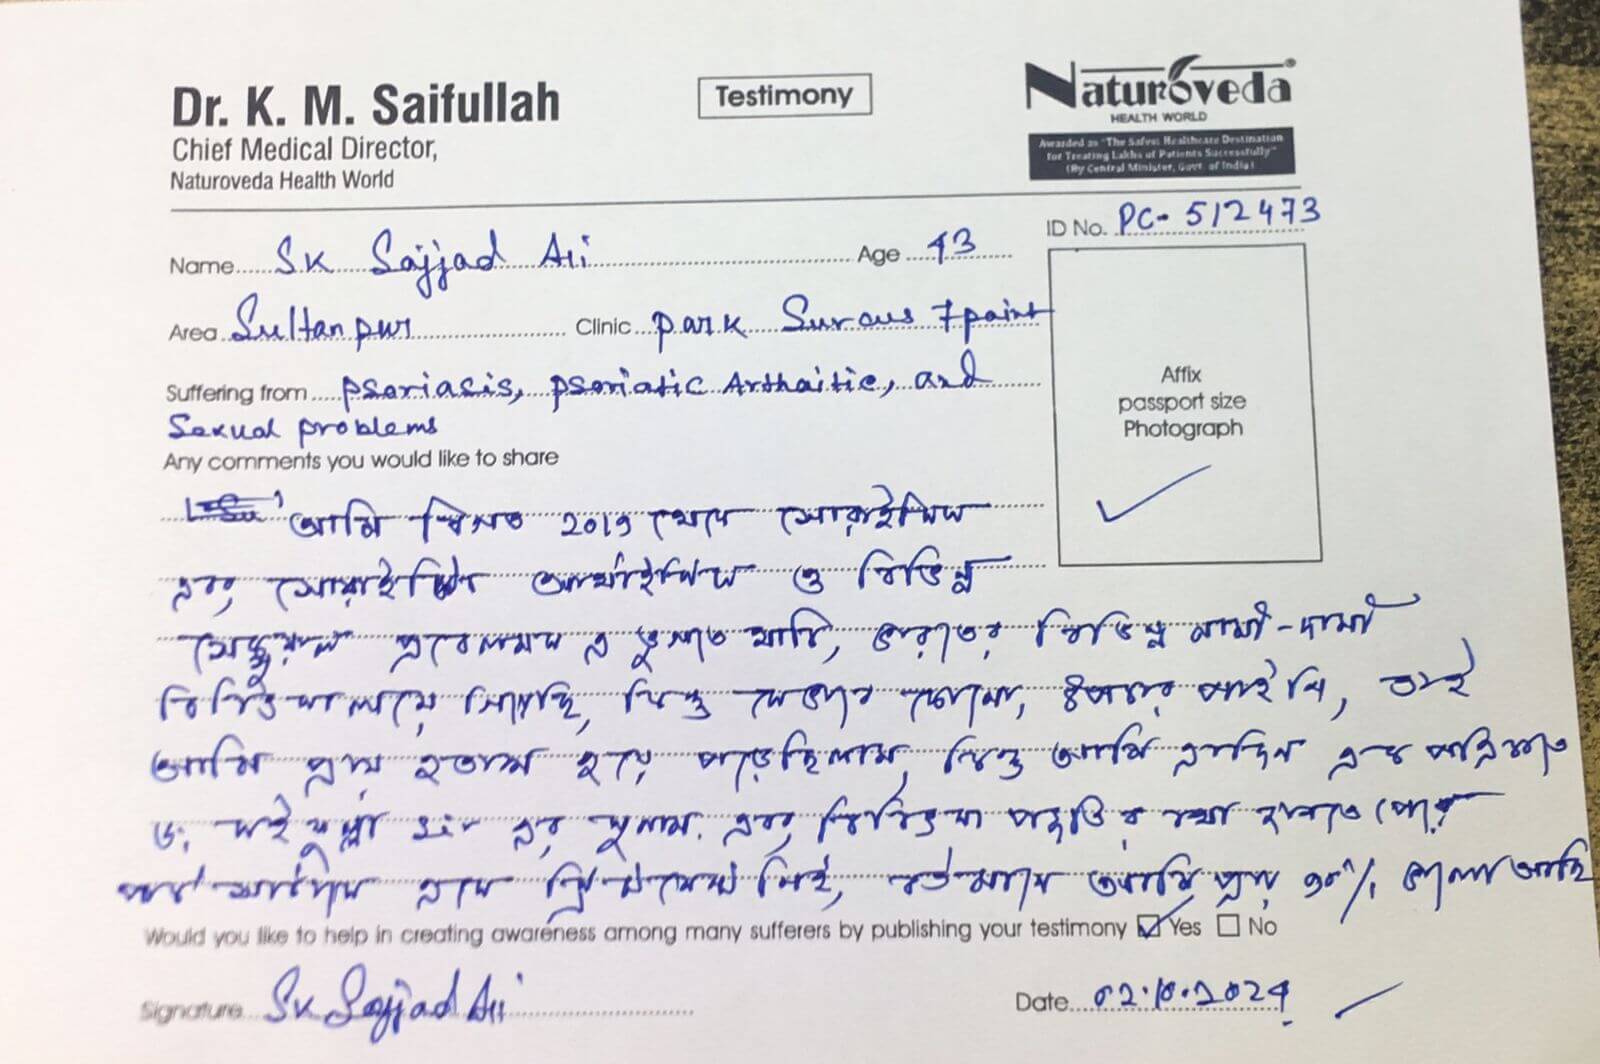 Dr. K. M. Saifullah
Chief Medical Director,
Naturoveda Health World
Testimony
Naturoveda®
HEALTH WORLD
Awarded as "The Safest Healthcare Destination
for Treating Lakhs of Patients Successfully"
(By Central Minister, Govt. of India)
ID No. PC- 512473
Name SK Sajjad Ali Age 43
Area Sultanpur Clinic park Surcus 7 paint
Suffering from psoriasis, psoriatic Arthaitic, and
Sexual problems
Affix
passport size
Photograph
Any comments you would like to share
আমি বিগত 2019 থেকে সোরাইসিস
এবং আর্থাইসিস ও বিভিন্ন
প্রবলেমস এ ভুগতে থাকি, ভারতের বিভিন্ন নামী-দামী
গিয়েছি, কিন্তু কোনো উপকার পাইনি, তাই
আমি প্রায় হতাশ হয়ে পড়েছিলাম, কিন্তু আমি একদিন
ড: সাইফুল্লা Sir এর এবং চিকিৎসা পদ্ধতির কথা জানতে
পার্ক এসে নিই, বর্তমানে আমি প্রায় ৯০% ভালো আছি
Would you like to help in creating awareness among many sufferers by publishing your testimony Yes No
Signature SK Sajjad Ali Date 02.10.2024